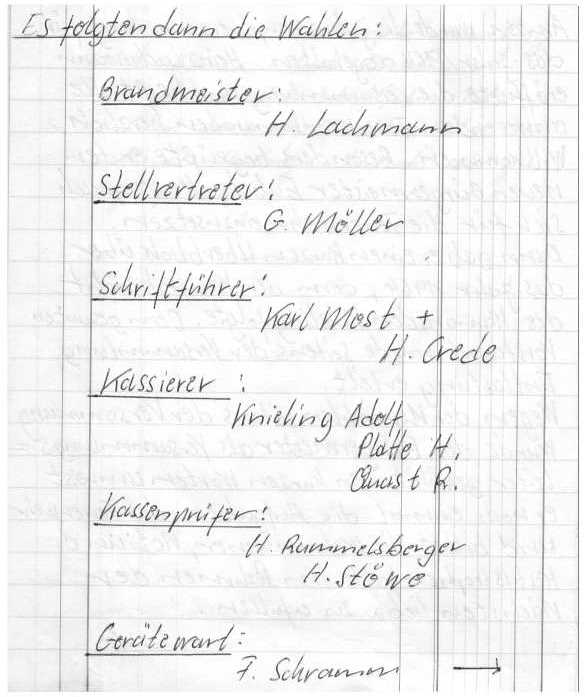 Es folgten dann die Wahlen:
Brandmeister:
H. Lachmann
Stellvertreter:
G. Möller
Schriftführer:
Karl Most +
H. Crede
Kassierer :
Knieling Adolf
Platte H.
Quast R.
Kassenprüfer:
H. Rummelsberger
H. Stöwe
Gerätewart:
F. Schramm →